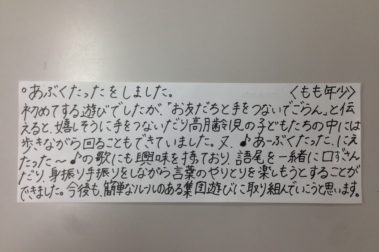 ○あぶくたったをしました。 〈もも年少〉
初めてする遊びでしたが、"お友だちと手をつないでごらん。"と伝
えると、嬉しそうに手をつないだり高月齢児の子どもたちの中には
歩きながら回ることもできていました。又、♪あーぶくたった、にえ
たった～♪の歌にも興味を持ており、語尾を一緒に口ずさん
だり、身振り手振りをしながら言葉のやりとりを楽しもうとすることが
できました。今後も、簡単なルールのある集団遊びに取り組んでいこうと思います。